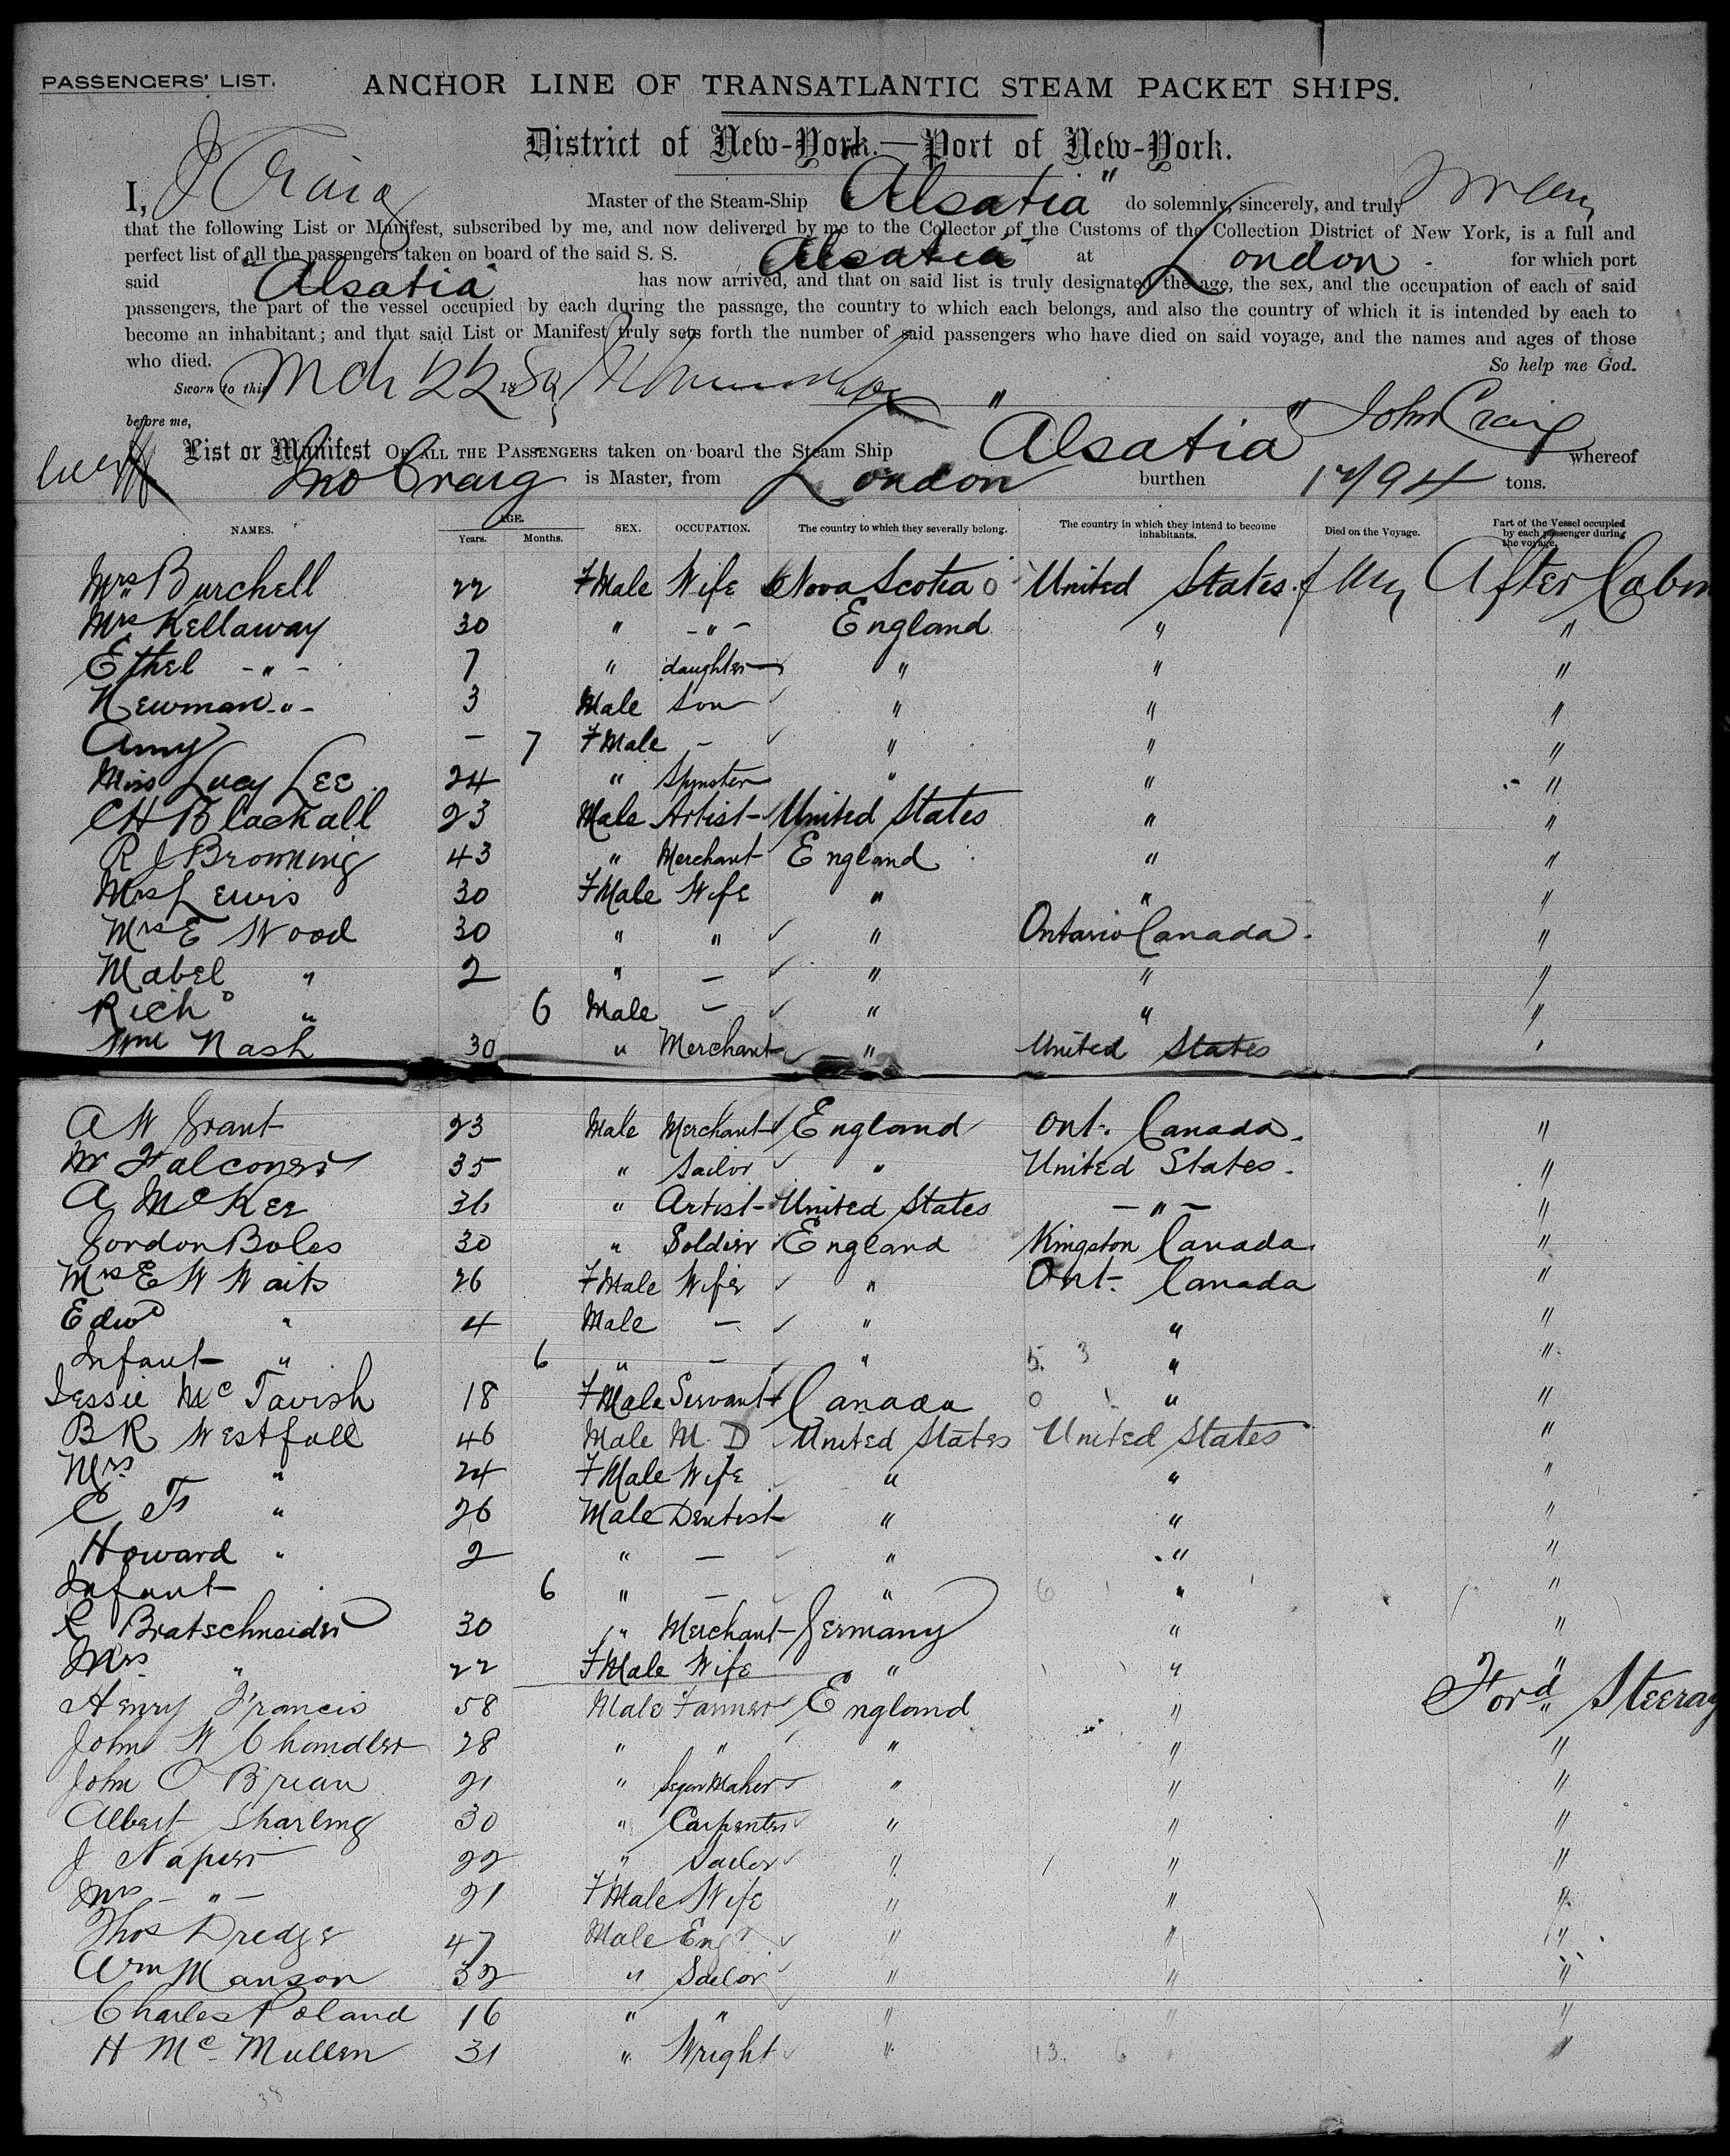 PASSENGERS' LIST.
ANCHOR LINE OF TRANSATLANTIC STEAM PACKET SHIPS.
District of New-York.—Port of New-York.
I, J Craig Master of the Steam-Ship "Alsatia" do solemnly, sincerely, and truly swear
that the following List or Manifest, subscribed by me, and now delivered by me to the Collector of the Customs of the Collection District of New York, is a full and
perfect list of all the passengers taken on board of the said S. S. "Alsatia" at London. for which port
said "Alsatia" has now arrived, and that on said list is truly designated the age, the sex, and the occupation of each of said
passengers, the part of the vessel occupied by each during the passage, the country to which each belongs, and also the country of which it is intended by each to
become an inhabitant; and that said List or Manifest truly sets forth the number of said passengers who have died on said voyage, and the names and ages of those
who died. So help me God.
Sworn to this Mch 22 18
before me, John Craig
List or Manifest OF ALL THE PASSENGERS taken on board the Steam Ship "Alsatia" whereof
Jno Craig is Master, from London burthen tons.
NAMES. AGE. Years. Months. SEX. OCCUPATION. The country to which they severally belong. The country in which they intend to become inhabitants. Died on the Voyage. Part of the Vessel occupied by each passenger during the voyage.
Mrs Burchell 22 FMale Wife Nova Scotia United States After Cabin
Mrs Kellaway 30 " - " - England " "
Ethel - " - 7 " daughter " " "
Newman - " - 3 Male Son " " "
Amy - 7 FMale - " " "
Miss Lucy Lee 24 " Spinster " " "
CH Blackall 23 Male Artist United States " "
R J Browning 43 " Merchant England " "
Mrs Lewis 30 FMale Wife " " "
Mrs E Wood 30 " " " Ontario Canada. "
Mabel " 2 " - " " "
Richd " 6 Male - " " "
Wm Nash 30 " Merchant " United States "
A W Grant 23 Male Merchant England Ont. Canada. "
Mr Falconer 35 " Sailor " United States. "
A McKee 36 " Artist United States - " - "
Gordon Boles 30 " Soldier England Kingston Canada. "
Mrs E W Waits 26 FMale Wife " Ont. Canada "
Edwd " 4 Male - " " "
Infant " 6 " - " " "
Jessie McTavish 18 FMale Servant Canada " "
B R Westfall 46 Male M. D United States United States "
Mrs " 24 FMale Wife " " "
" 26 Male Dentist " " "
Howard " 2 " - " " "
Infant 6 " - " " "
R Bratschneider 30 " Merchant Germany " "
Mrs " 22 FMale Wife " " "
Henry Francis 58 Male Farmer England " Ford Steerage
John W Chandler 28 " " " " "
John O Brian 21 " Segar Maker " " "
Albert Sharling 30 " Carpenter " " "
J Naper 22 " Sailor " " "
Mrs - " - 21 FMale Wife " " "
Thos Dredge 47 Male Engr " " "
Wm Manson 32 " Sailor " " "
Charles Poland 16 " " " " "
H McMullen 31 " Wright " "